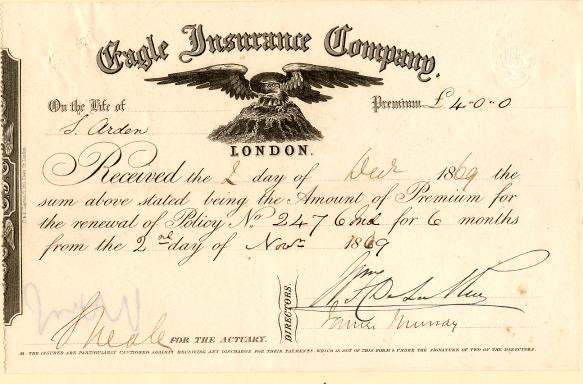 Eagle Insurance Company.
On the Life of
Premium £ 4-0-0
S. Arden
LONDON.
Received the 2 day of Decr 1869 the
sum above stated being the Amount of Premium for
the renewal of Policy No. 2476 for 6 months
from the 2nd day of Novr 1869
DIRECTORS.
James Murray
S Neale FOR THE ACTUARY.
THE INSURED ARE PARTICULARLY CAUTIONED AGAINST RECEIVING ANY DISCHARGE FOR THEIR PAYMENTS, WHICH IS NOT OF THIS FORM & UNDER THE SIGNATURE OF TWO OF THE DIRECTORS.